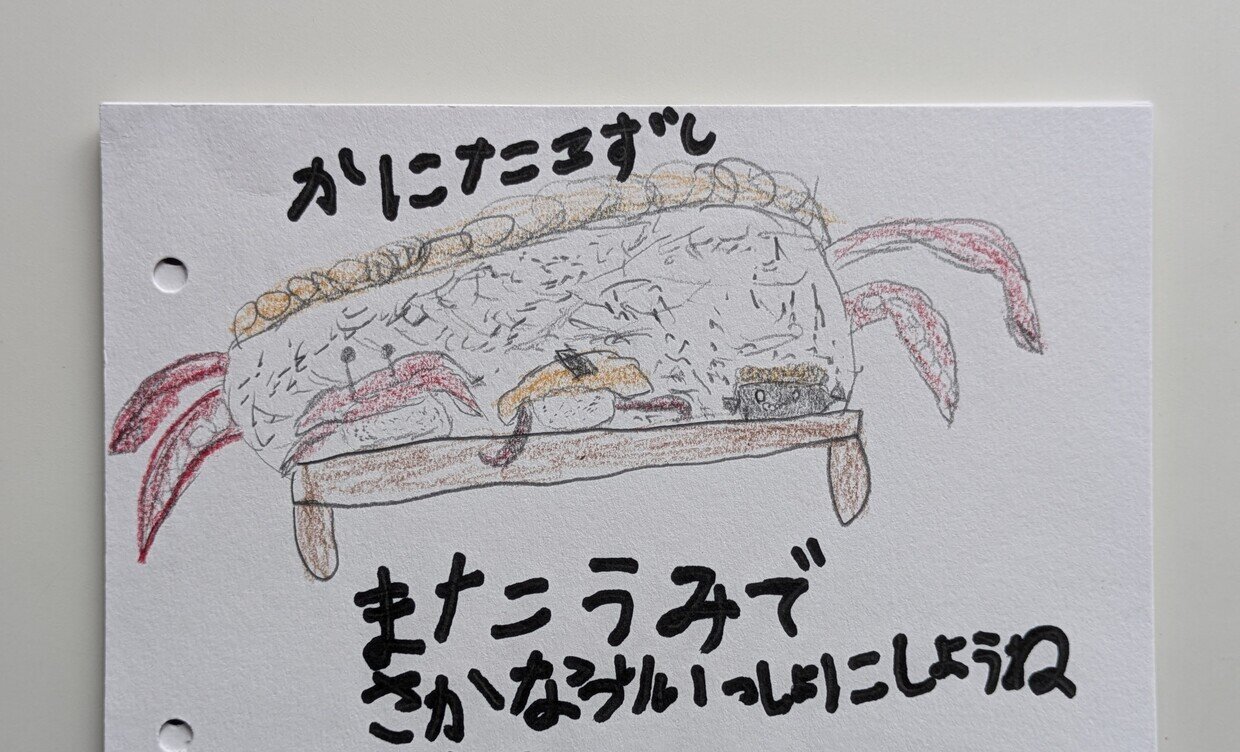 かにたこずし
またうみで
さかなつりいっしょにしようね